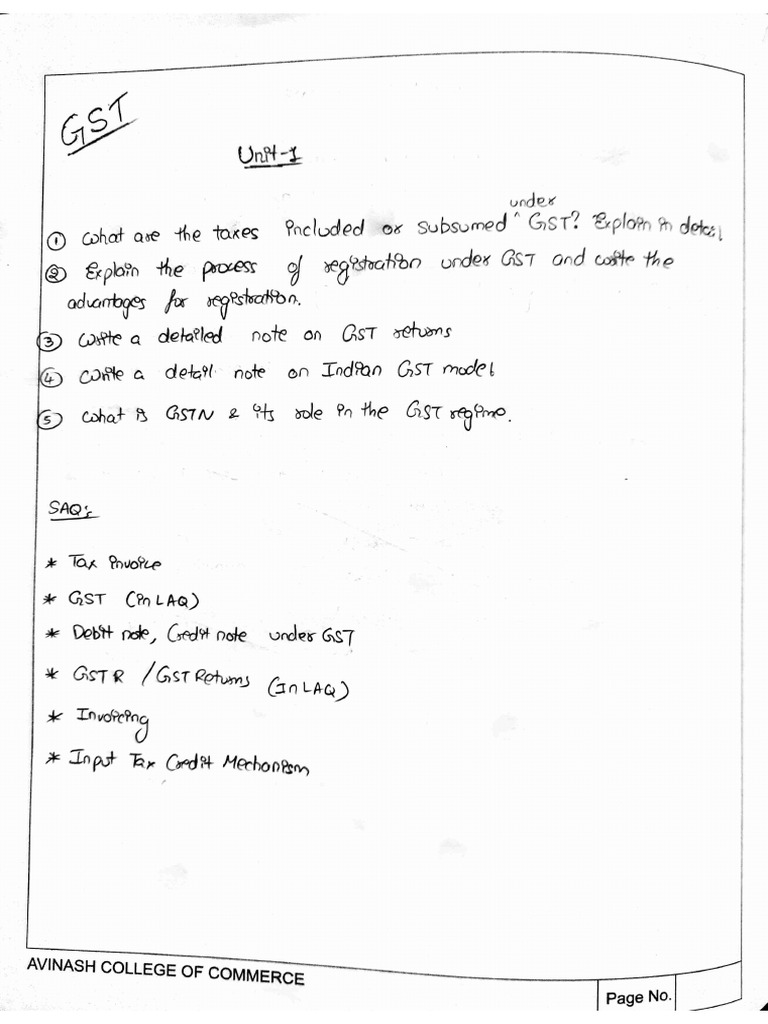 GST
Unit-1
① What are the taxes included or subsumed ^under GST? Explain in detail
② Explain the process of registration under GST and write the
advantages for registration.
③ Write a detailed note on GST returns
④ Write a detail note on Indian GST model
⑤ What is GSTN & its role in the GST regime.
SAQ's
* Tax invoice
* GST (in LAQ)
* Debit note, Credit note under GST
* GSTR / GST Returns (In LAQ)
* Invoicing
* Input Tax Credit Mechanism
AVINASH COLLEGE OF COMMERCE
Page No.